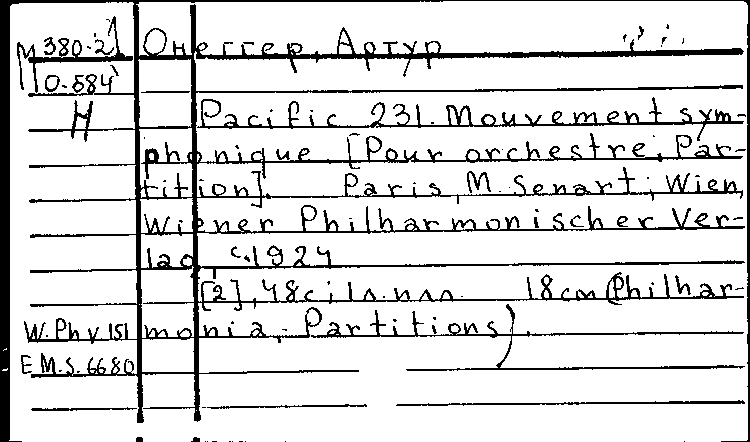 М 380-2 Онеггер, Артур
10-584
Н Pacific 231. Mouvement sym-
phonique. [Pour orchestre. Par-
tition]. Paris, M. Senart; Wien,
Wiener Philharmonischer Ver-
lag, c. 1924
[2], 48 с. 18 cm (Philhar-
W. Ph V 151 monia, Partitions).
E. M. S. 6680